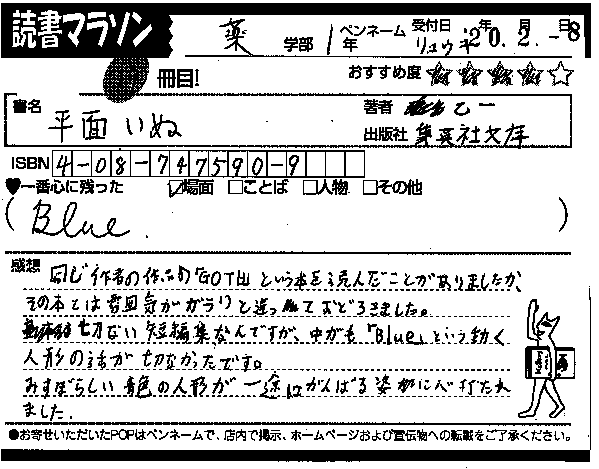 読書マラソン 薬 学部 1年 ペンネーム リュウネ 受付日 20年2月-8日
冊目! おすすめ度 ★★★★☆
書名 平面いぬ 著者 乙一
出版社 集英社文庫
ISBN 4-08-747590-9
♥一番心に残った ☑場面 □ことば □人物 □その他
(Blue.)
感想 同じ作者の作品の「GOTH」という本を読んだことがありましたが、
その本とは雰囲気がガラリと違っておどろきました。
切ない短編集なんですが、中でも「Blue」という動く
人形の話が切なかったです。
みすぼらしい青色の人形が一途にがんばる姿に心打たれ
ました。
●お寄せいただいたPOPはペンネームで、店内で掲示、ホームページおよび宣伝物への転載をご了承ください。